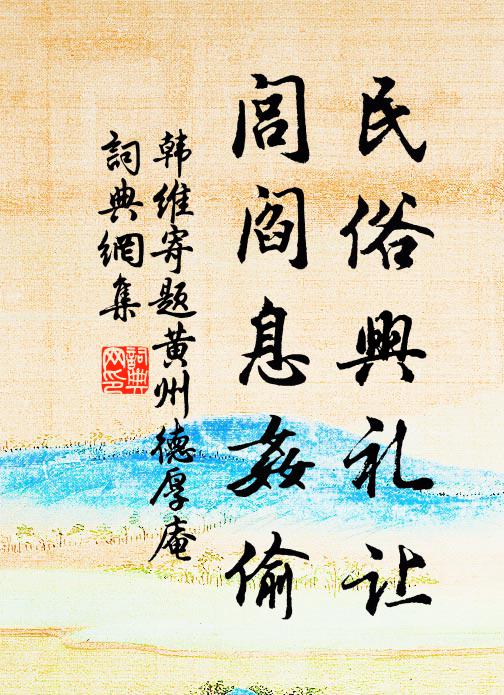 民俗興礼让
闾阎息姦偷
韩维寄题黄州德厚庵
詞典網集
詞典網印